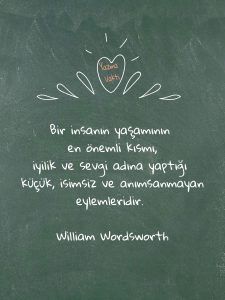 Yazma
Vakti
Bir insanın yaşamının
en önemli kısmı,
iyilik ve sevgi adına yaptığı
küçük, isimsiz ve anımsanmayan
eylemleridir.
William Wordsworth